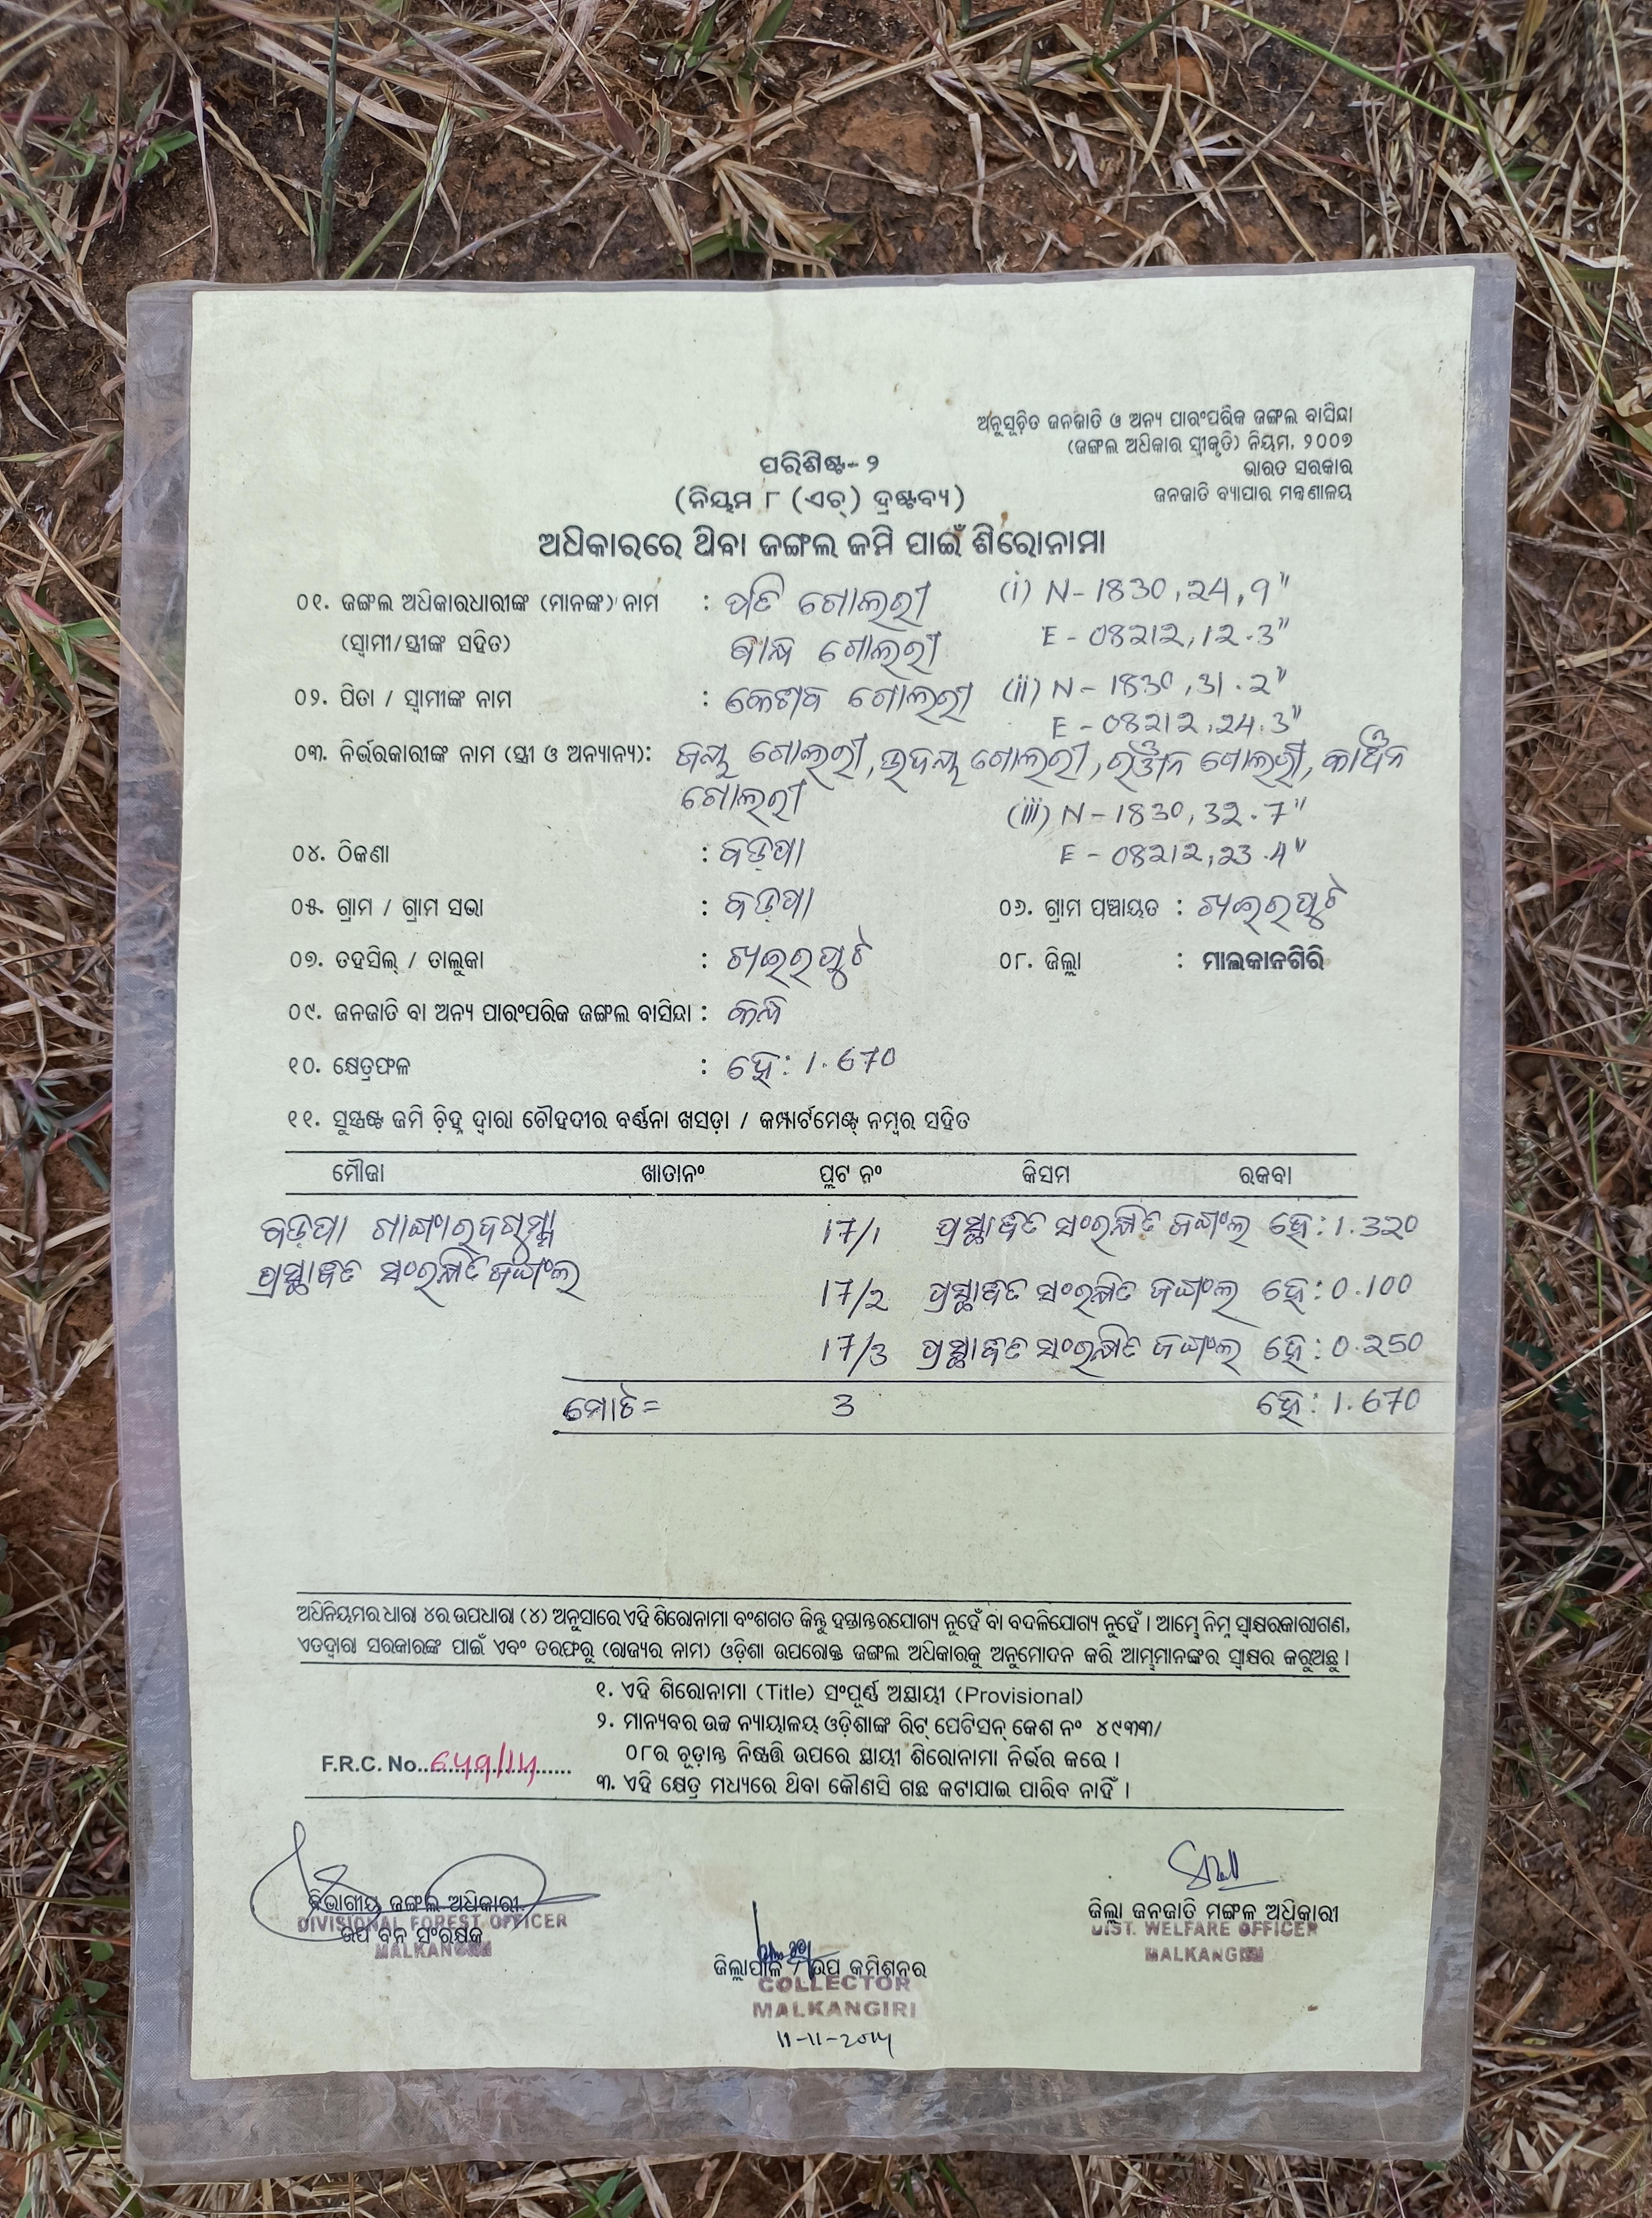 ଅନୁସୂଚିତ ଜନଜାତି ଓ ଅନ୍ୟ ପାରଂପରିକ ଜଙ୍ଗଲ ବାସିନ୍ଦା
(ଜଙ୍ଗଲ ଅଧିକାର ସ୍ୱୀକୃତି) ନିୟମ, ୨୦୦୭
ଭାରତ ସରକାର
ଜନଜାତି ବ୍ୟାପାର ମନ୍ତ୍ରଣାଳୟ
ପରିଶିଷ୍ଟ- ୨
(ନିୟମ ୮ (ଏଚ୍) ଦ୍ରଷ୍ଟବ୍ୟ)
ଅଧିକାରରେ ଥିବା ଜଙ୍ଗଲ ଜମି ପାଇଁ ଶିରୋନାମା
୦୧. ଜଙ୍ଗଲ ଅଧିକାରଧାରୀଙ୍କ (ମାନଙ୍କ) ନାମ : ଗୋଲରୀ (i) N- 1830, 24, 9"
(ସ୍ୱାମୀ/ସ୍ତ୍ରୀଙ୍କ ସହିତ) ଗୋଲରୀ E - 08212, 12.3"
୦୨. ପିତା / ସ୍ୱାମୀଙ୍କ ନାମ : କେଶବ ଗୋଲରୀ (ii) N - 1830, 31.2"
E - 08212, 24.3"
୦୩. ନିର୍ଭରକାରୀଙ୍କ ନାମ (ସ୍ତ୍ରୀ ଓ ଅନ୍ୟାନ୍ୟ): ଗୋଲରୀ, ଗୋଲରୀ, ଗୋଲରୀ,
ଗୋଲରୀ (iii) N - 1830, 32.7"
୦୪. ଠିକଣା : ବଡ଼ପା E - 08212, 23.4"
୦୫. ଗ୍ରାମ / ଗ୍ରାମ ସଭା : ବଡ଼ପା ୦୬. ଗ୍ରାମ ପଞ୍ଚାୟତ : ଖଇରପୁଟ
୦୭. ତହସିଲ୍ / ତାଲୁକା : ଖଇରପୁଟ ୦୮. ଜିଲ୍ଲା : ମାଲକାନଗିରି
୦୯. ଜନଜାତି ବା ଅନ୍ୟ ପାରଂପରିକ ଜଙ୍ଗଲ ବାସିନ୍ଦା :
୧୦. କ୍ଷେତ୍ରଫଳ : ହେ: 1.670
୧୧. ସୁସ୍ପଷ୍ଟ ଜମି ଚିହ୍ନ ଦ୍ୱାରା ଚୌହଦୀର ବର୍ଣ୍ଣନା ଖସଡ଼ା / କମ୍ପାର୍ଟମେଣ୍ଟ୍ ନମ୍ବର ସହିତ
ମୌଜା ଖାତାନଂ ପ୍ଲଟ ନଂ କିସମ ରକବା
ବଡ଼ପା 17/1 ପ୍ରସ୍ଥାବିତ ସଂରକ୍ଷିତ ଜଙ୍ଗଲ ହେ: 1.320
ପ୍ରସ୍ଥାବିତ ସଂରକ୍ଷିତ ଜଙ୍ଗଲ
17/2 ପ୍ରସ୍ଥାବିତ ସଂରକ୍ଷିତ ଜଙ୍ଗଲ ହେ: 0.100
17/3 ପ୍ରସ୍ଥାବିତ ସଂରକ୍ଷିତ ଜଙ୍ଗଲ ହେ: 0.250
ମୋଟ= 3 ହେ: 1.670
ଅଧିନିୟମର ଧାରା ୪ର ଉପଧାରା (୪) ଅନୁସାରେ ଏହି ଶିରୋନାମା ବଂଶଗତ କିନ୍ତୁ ହସ୍ତାନ୍ତରଯୋଗ୍ୟ ନୁହେଁ ବା ବଦଳିଯୋଗ୍ୟ ନୁହେଁ । ଆମ୍ଭେ ନିମ୍ନ ସ୍ୱାକ୍ଷରକାରୀଗଣ,
ଏତଦ୍ୱାରା ସରକାରଙ୍କ ପାଇଁ ଏବଂ ତରଫରୁ (ରାଜ୍ୟର ନାମ) ଓଡ଼ିଶା ଉପରୋକ୍ତ ଜଙ୍ଗଲ ଅଧିକାରକୁ ଅନୁମୋଦନ କରି ଆମ୍ଭମାନଙ୍କର ସ୍ୱାକ୍ଷର କରୁଅଛୁ ।
୧. ଏହି ଶିରୋନାମା (Title) ସଂପୂର୍ଣ୍ଣ ଅସ୍ଥାୟୀ (Provisional)
୨. ମାନ୍ୟବର ଉଚ୍ଚ ନ୍ୟାୟାଳୟ ଓଡ଼ିଶାଙ୍କ ରିଟ୍ ପେଟିସନ୍ କେଶ ନଂ ୪୯୩୩/
୦୮ର ଚୂଡ଼ାନ୍ତ ନିଷ୍ପତ୍ତି ଉପରେ ସ୍ଥାୟୀ ଶିରୋନାମା ନିର୍ଭର କରେ ।
F.R.C. No.
୩. ଏହି କ୍ଷେତ୍ର ମଧ୍ୟରେ ଥିବା କୌଣସି ଗଛ କଟାଯାଇ ପାରିବ ନାହିଁ ।
ବିଭାଗୀୟ ଜଙ୍ଗଲ ଅଧିକାରୀ
DIVISIONAL FOREST OFFICER
ଉପ ବନ ସଂରକ୍ଷକ
MALKANGIRI
ଜିଲ୍ଲାପାଳ / ଉପ କମିଶନର
COLLECTOR
MALKANGIRI
11-11-2014
ଜିଲ୍ଲା ଜନଜାତି ମଙ୍ଗଳ ଅଧିକାରୀ
DIST. WELFARE OFFICER
MALKANGIRI